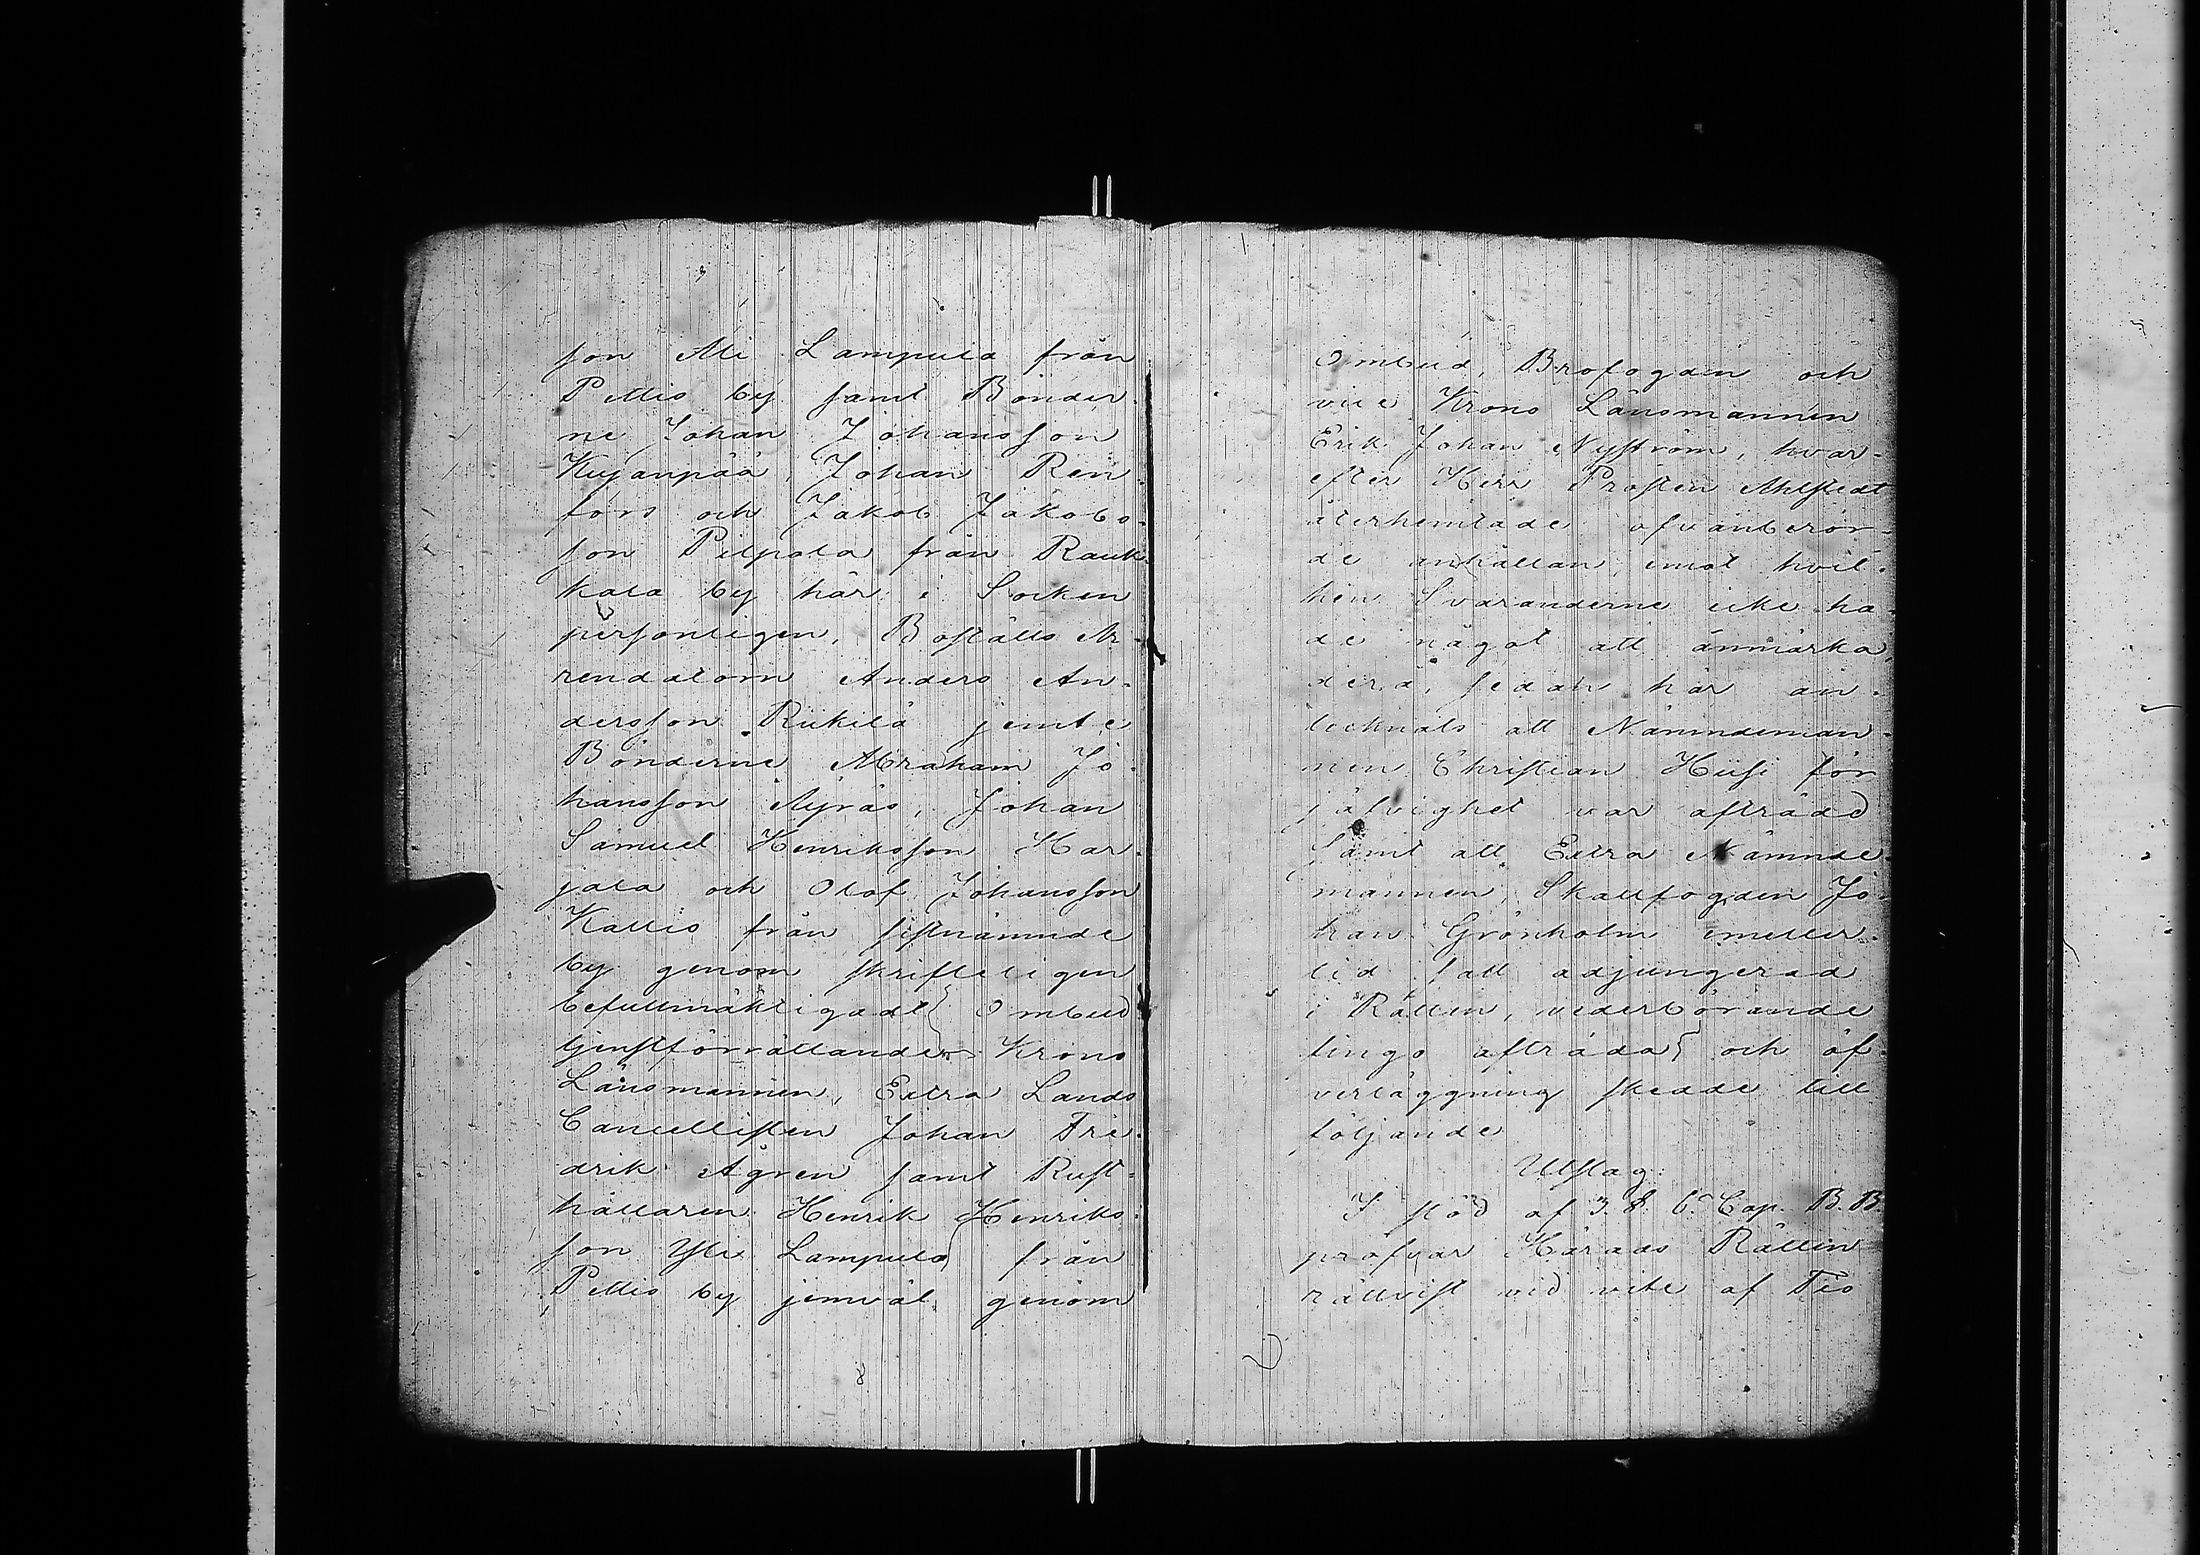 son Ali Lampula från
Pettis by samt Bönder-
ne Johan Johansson
Kujanpää, Johan Ren-
fors och Jakob Jakobs-
son Pilpola från Rauk-
kala by här i Socken
personligen, Boställs Ar-
rendatorn Anders An-
dersson Riikilä jemte
Bönderne Abraham Jo-
hansson Äyräs, Johan
Samuel Henriksson Har-
jala och Olof Johansson
Kallio från sistnämnde
by genom skrifteligen
befullmäktigadt Ombud
tjenstförrättanden Krono
Länsmannen, Extra Lands
Cancellisten Johan Fre-
drik Ågren samt Rust-
hållaren Henrik Henriks-
son Yli Lampula från
Pettis by jemväl genom
8
Ombud, Brofogden och
vice Krono Länsmannen
Erik Johan Nyström, hvar-
efter Herr Prosten Ahlstedt
återhemtade ofvanberör-
de anhållan, emot hvil-
ken Svaranderne icke ha-
de något att anmärka,
derå, sedan här an-
tecknats att Nämndeman-
nen Christian Heisi för
jäfvighet var afträdd
samt att Extra Nämnde-
mannen, Skallfogden Jo-
han Grönholm emeller-
tid satt adjungerad
i Rätten, vederbörande
tingo afträda och öf-
verläggning skedde till
följande
Utslag:
I stöd af 3. §. 6. Cap. B. B.
pröfvar Härads Rätten
rättvist vid vite af Tio